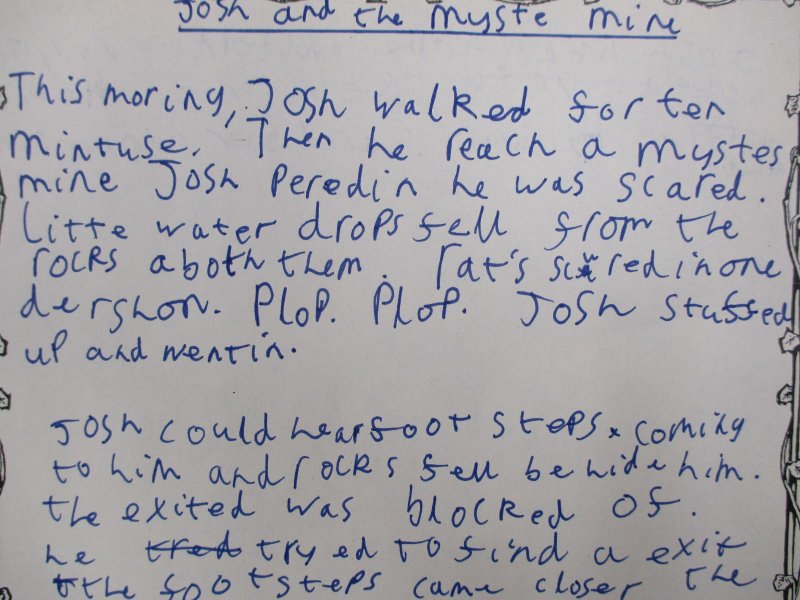 Josh and the myste mine
This moring, Josh walked for ten
mintuse. Then he reach a mystes
mine Josh Peredin he was scared.
Litte water drops fell from the
rocks aboth them. rat's scured in one
dershon. Plop. Plop. Josh stuffed
up and wentin.
Josh could hear foot steps coming
to him and rocks fell behide him.
the exited was blocked of.
he tred tryed to find a exit
the footsteps came closer the